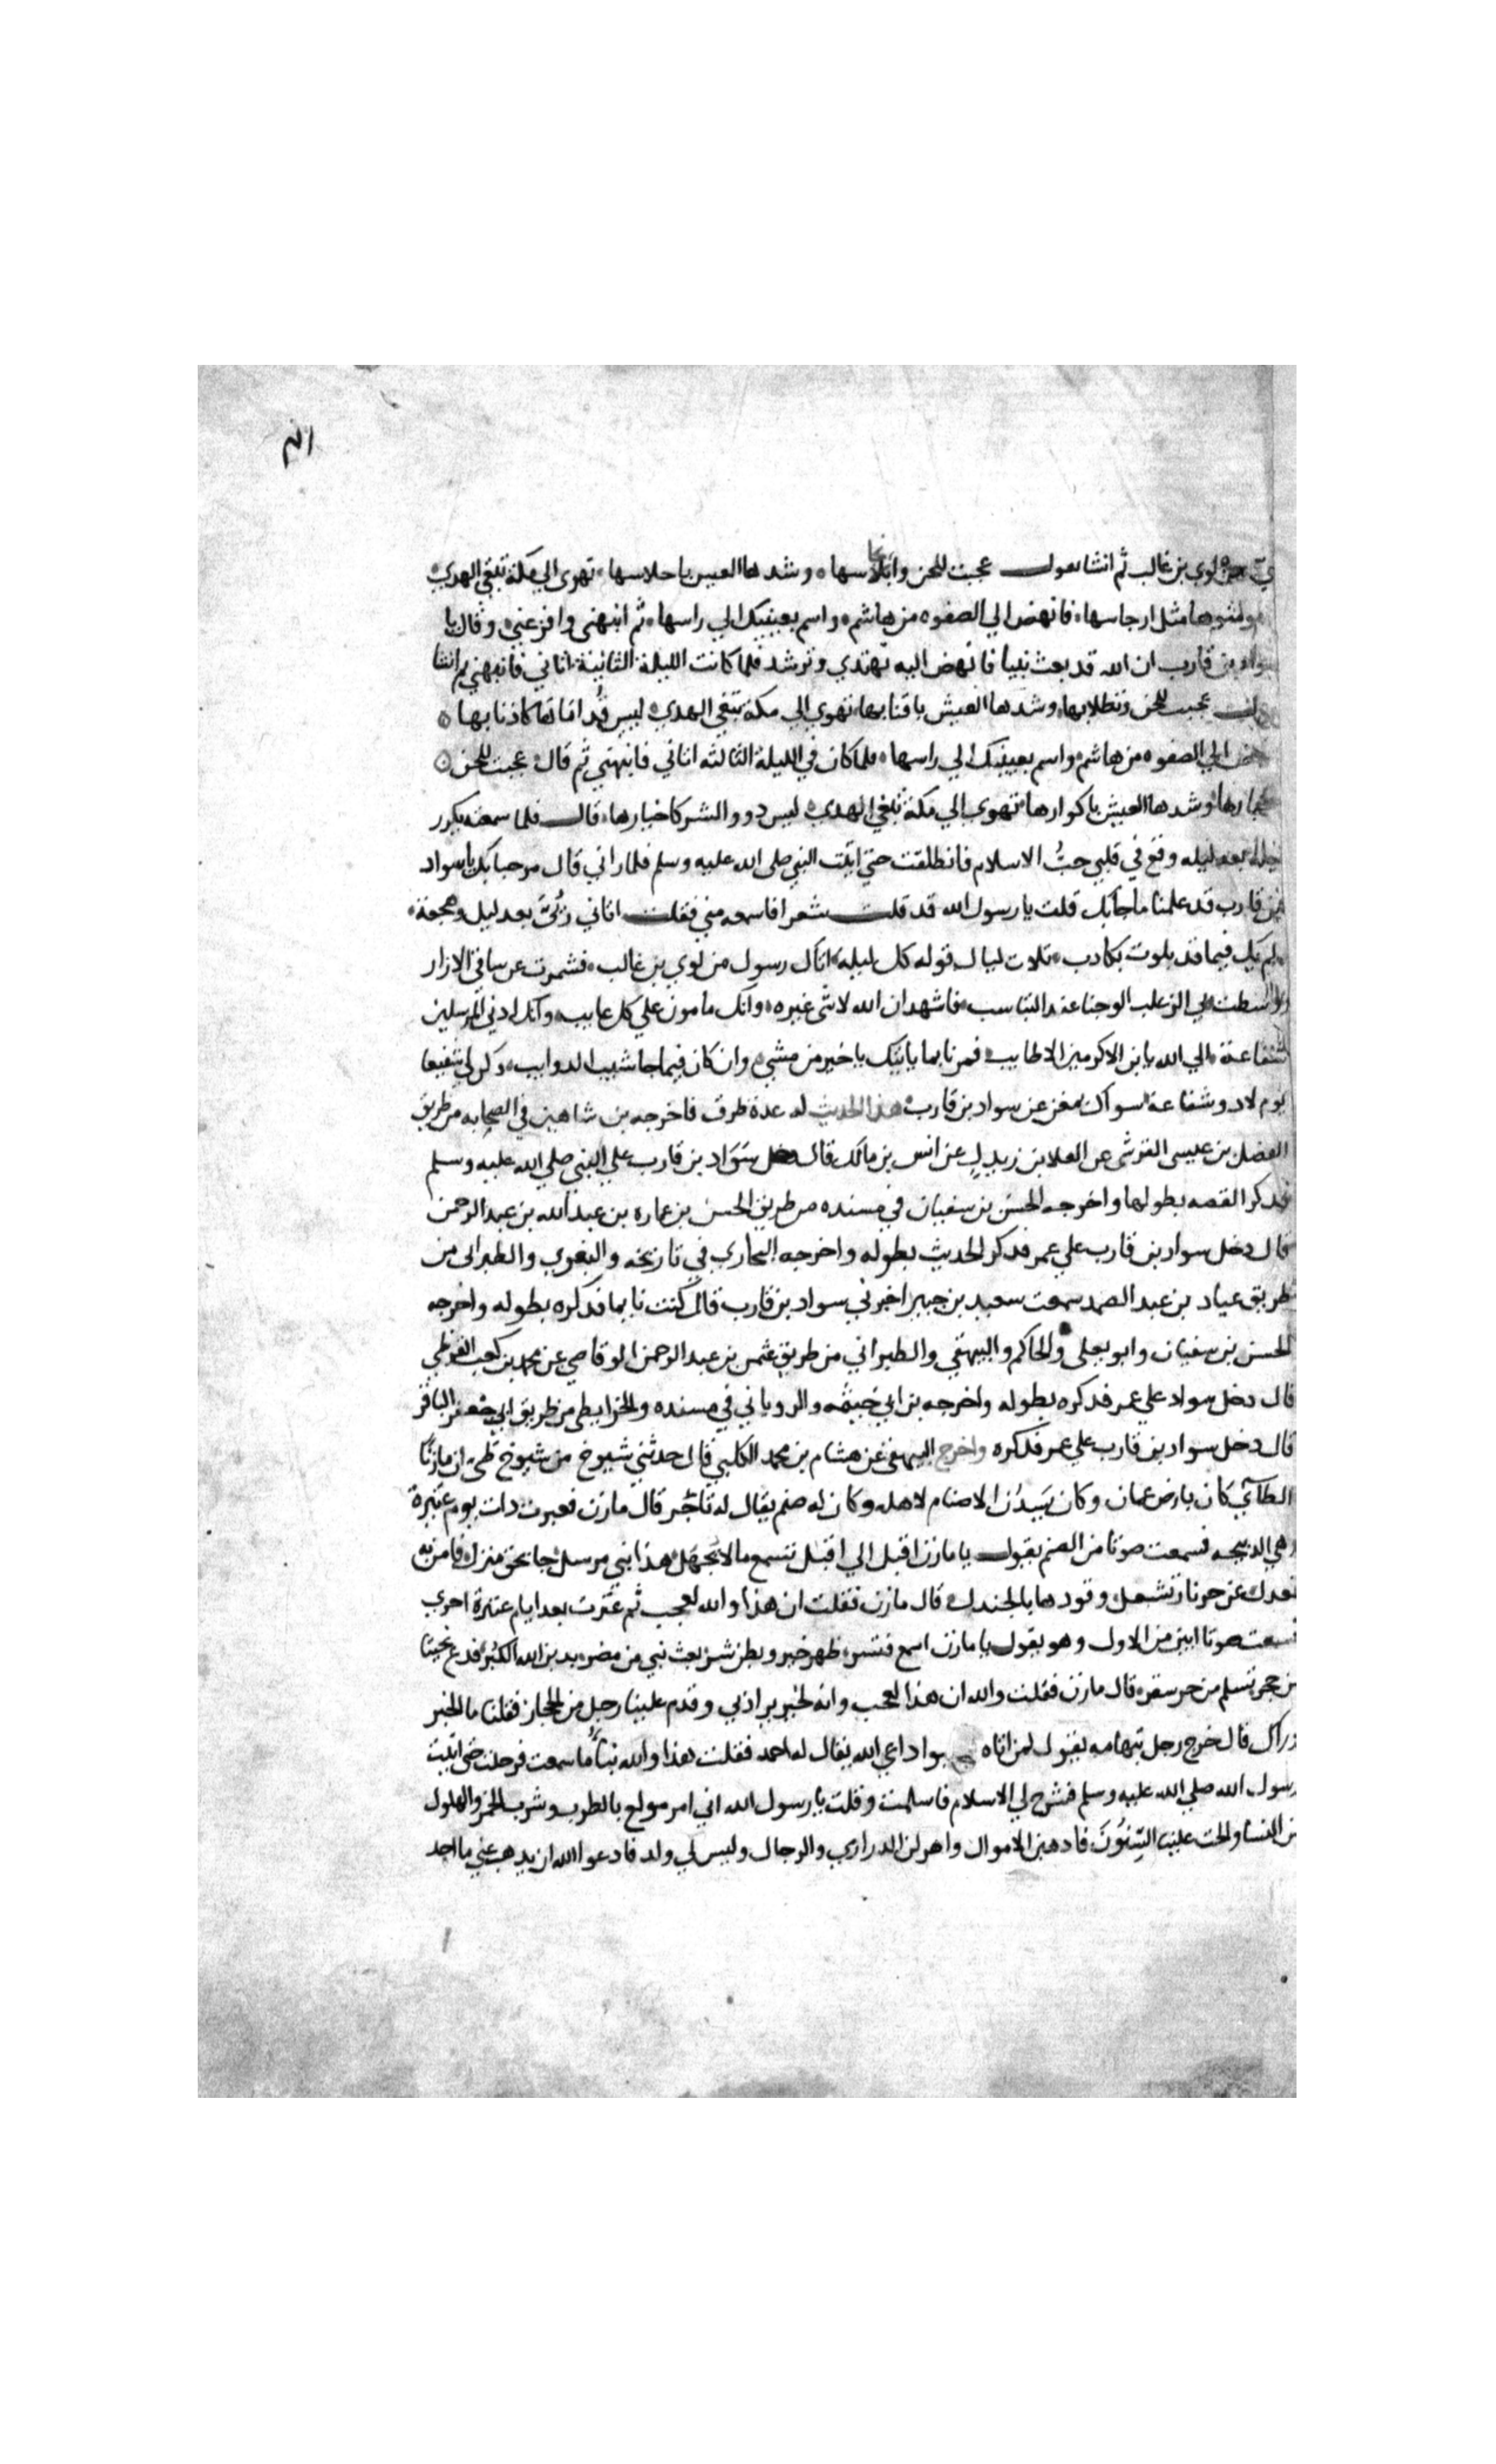 لوي بن غالب ثم انشا يقول عجبت للجن وابلاسها وشدها العيس باحلاسها تهوي الي مكة تبغي الهدي
مثل ارجاسها فانهض الي الصفوه من هاشم واسم بعينيك الي راسها ثم انبهني وافزعني وقال يا
بن قارب ان الله قد بعث نبيا فانهض اليه تهتدي وترشد فلما كانت الليلة الثانية اتاني فانبهني ثم انشا
عجبت للجن وتطلابها وشدها العيش باقتابها تهوي الي مكة تبغي الهدي ليس قداماها كاذنابها
الي الصفوه من هاشم واسم بعينيك الي راسها فلما كان في الليلة الثالثه اتاني فانبهني ثم قال عجبت للجن
وشدها العيش باكوارها تهوي الي مكة تبغي الهدي ليس ذوو الشر كاخيارها قال فلما سمعته يكرر
ليله بعد ليله وقع في قلبي حب الاسلام فانطلقت حتي اتيت النبي صلى الله عليه وسلم فلما راني قال مرحبا بك يا سواد
بن قارب قد علمنا ما جا بك قلت يا رسول الله قد قلت شعرا فاسمعه مني فقلت اتاني رئي بعد ليل وهجعة
ولم يك فيما قد بلوت بكادب تلاث ليال قوله كل ليله اتاك رسول من لوي بن غالب فشمرت عن ساقي الازار
الدعلب الوجنا عند السباسب فاشهد ان الله لا شي غيره وانك مامون علي كل غايب وانك ادني المرسلين
شفاعة الي الله يا بن الاكرمين الاطايب فمرنا بما ياتيك يا خير من مشي وان كان فيما جا شيب الدوايب وكن لي شفيعا
يوم لا ذو شفاعة سواك بمغن عن سواد بن قارب هذا الحديث له عدة طرق فاخرجه بن شاهين في الصحابه من طريق
الفضل بن عيسى القرشي عن العلا بن زيدل عن انس بن مالك قال دخل سواد بن قارب علي النبي صلي الله عليه وسلم
فذكر القصه بطولها واخرجه الحسن بن سفيان في مسنده من طريق الحسن بن عماره بن عبد الله بن عبد الرحمن
قال دخل سواد بن قارب علي عمر فذكر الحديث بطوله واخرجه البخاري في تاريخه والبغوي والطبراني من
طريق عباد بن عبد الصمد سمعت سعيد بن جبير اخبرني سواد بن قارب قال كنت نايما فذكره بطوله واخرجه
الحسن بن سفيان وابو يعلى والحاكم والبيهقي والطبراني من طريق عثمن بن عبد الرحمن الوقاصي عن محمد بن كعب القرظي
قال دخل سواد علي عمر فذكره بطوله واخرجه بن ابي خيثمه والروياني في مسنده والخرايطي من طريق ابي جعفر الباقر
قال دخل سواد بن قارب علي عمر فذكره واخرج البيهقي عن هشام بن محمد الكلبي قال حدثني شيوخ من شيوخ طي ان مازنا
الطآي كان بارض عمان وكان يسدن الاصنام لاهله وكان له صنم يقال له ناجر قال مازن فعبرت دات يوم عتيرة
وهي الدبيحه فسمعت صوتا من الصنم يقول يا مازن اقبل الي اقبل تسمع ما لا تجهل هذا نبي مرسل جا بحق منزل فامن به
تعدل عن حر نار تشعل وقودها بالجندل قال مازن فقلت ان هذا والله لعجب ثم عترت بعد ايام عتيرة اخري
فسمعت صوتا ابين من الاول وهو يقول يا مازن اسمع تسر ظهر خير وبطن شر بعث نبي من مضر بدين الله الكبر فدع نحيتا
من حجر تسلم من حر سقر قال مازن فقلت والله ان هذا لعجب وانه لخير يراد بي وقدم علينا رجل من الحجاز فقلنا ما الخبر
وراك قال خرج رجل بتهامه يقول لمن اتاه اجيبوا داعي الله يقال له احمد فقلت هذا والله نبا ما سمعت فرحلت حتي اتيت
رسول الله صلي الله عليه وسلم فشرح لي الاسلام فاسلمت وقلت يا رسول الله اني امر مولع بالطرب وشرب الخمر والهلوك
من النسا والحت علينا السنون فادهبن الاموال واهزلن الدراري والرجال وليس لي ولد فادعوا الله ان يدهب عني ما اجد